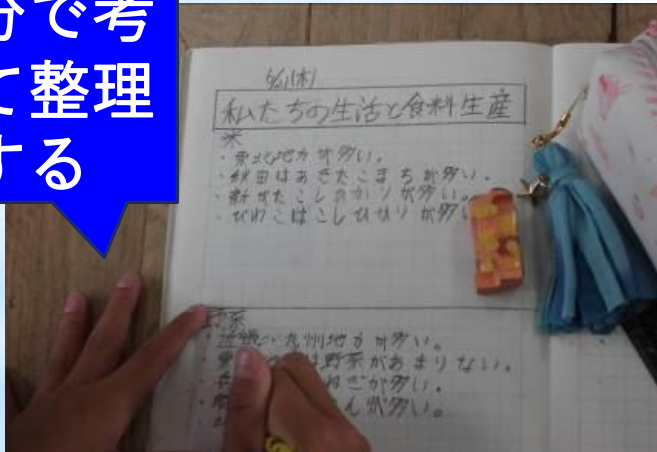 分で考
て整理
する
6/21(木)
私たちの生活と食料生産
米
・東北地方が多い。
・秋田はあきたこまちが多い。
・新がたこしひかりが多い。
・びわこはこしひかりが多い
野菜
・近畿・九州地方が多い。
は野菜があまりない。
ねぎが多い。
んが多い。